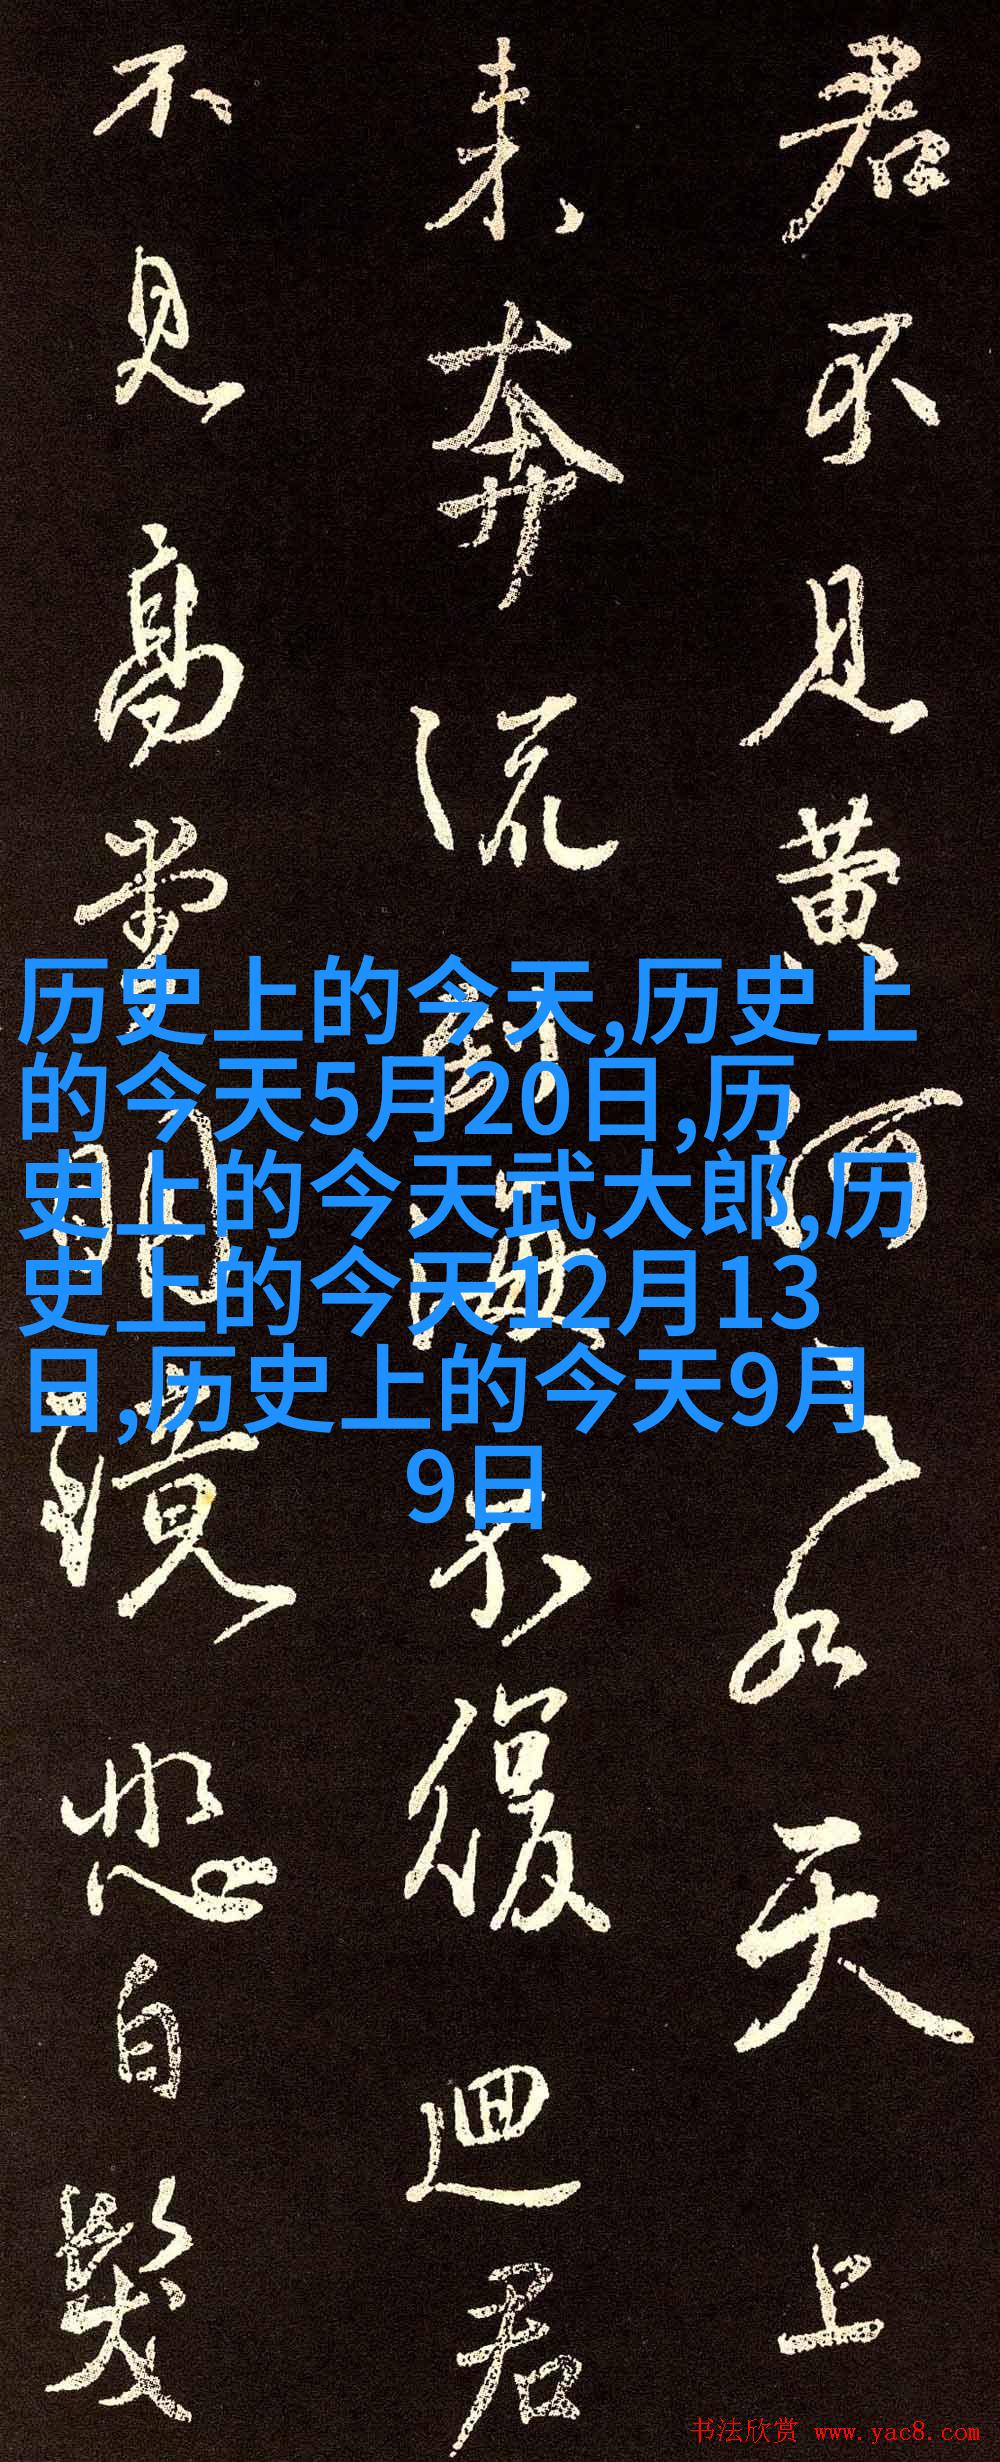 君不见黄河之水天上
来奔流到海不復迴君
不见高堂明镜悲白髮
历史上的今天,历史上
的今天5月20日,历
史上的今天武大郎,历
史上的今天12月13
日,历史上的今天9月
9日
书法欣赏 www.yac8.com